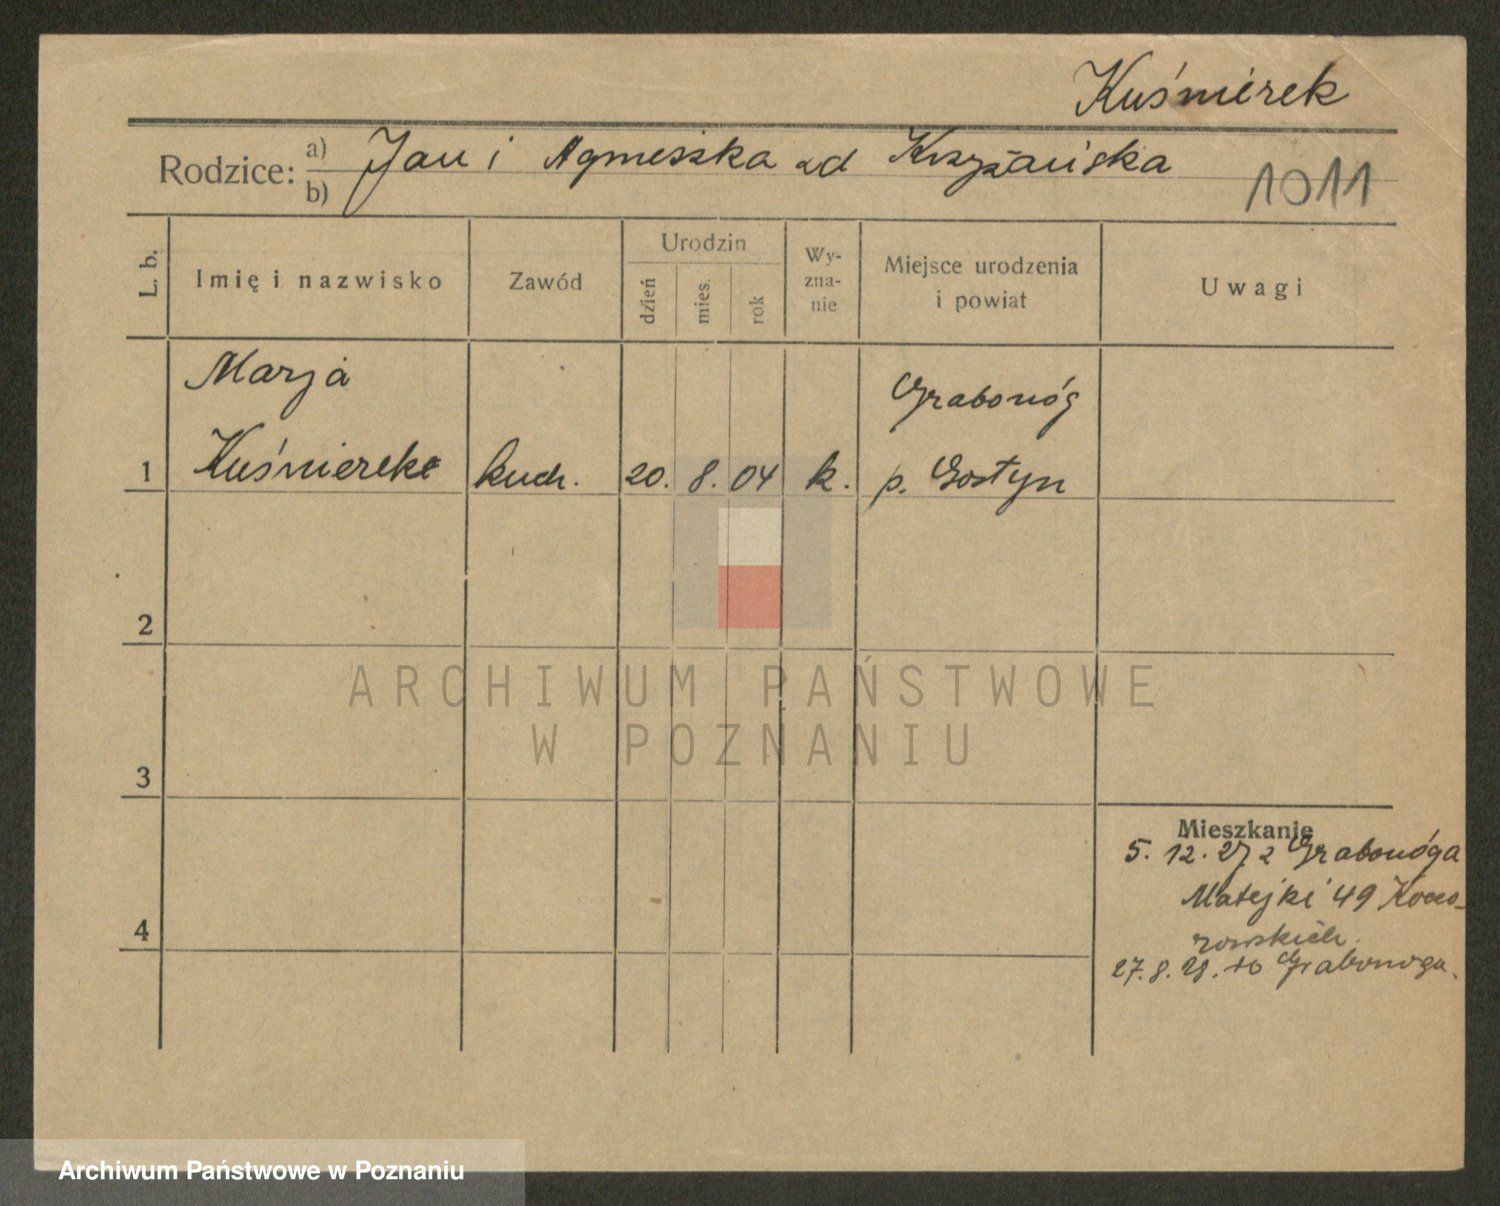 Kuśmierek
Rodzice: a) Jan i Agnieszka zd Krzyżańska
b)
1011
L. b.
Imię i nazwisko
Zawód
Urodzin
dzień
mies.
rok
Wy-
zna-
nie
Miejsce urodzenia
i powiat
Uwagi
Marja
Grabonóg
1 Kuśmierek kuch. 20. 8. 04 k. p. Gostyn
2
ARCHIWUM PAŃSTWOWE
W POZNANIU
3
Mieszkanie
5. 12. 27 z Grabonóga
Matejki 49
4
27. 8. 28. do Grabonoga.
Archiwum Państwowe w Poznaniu